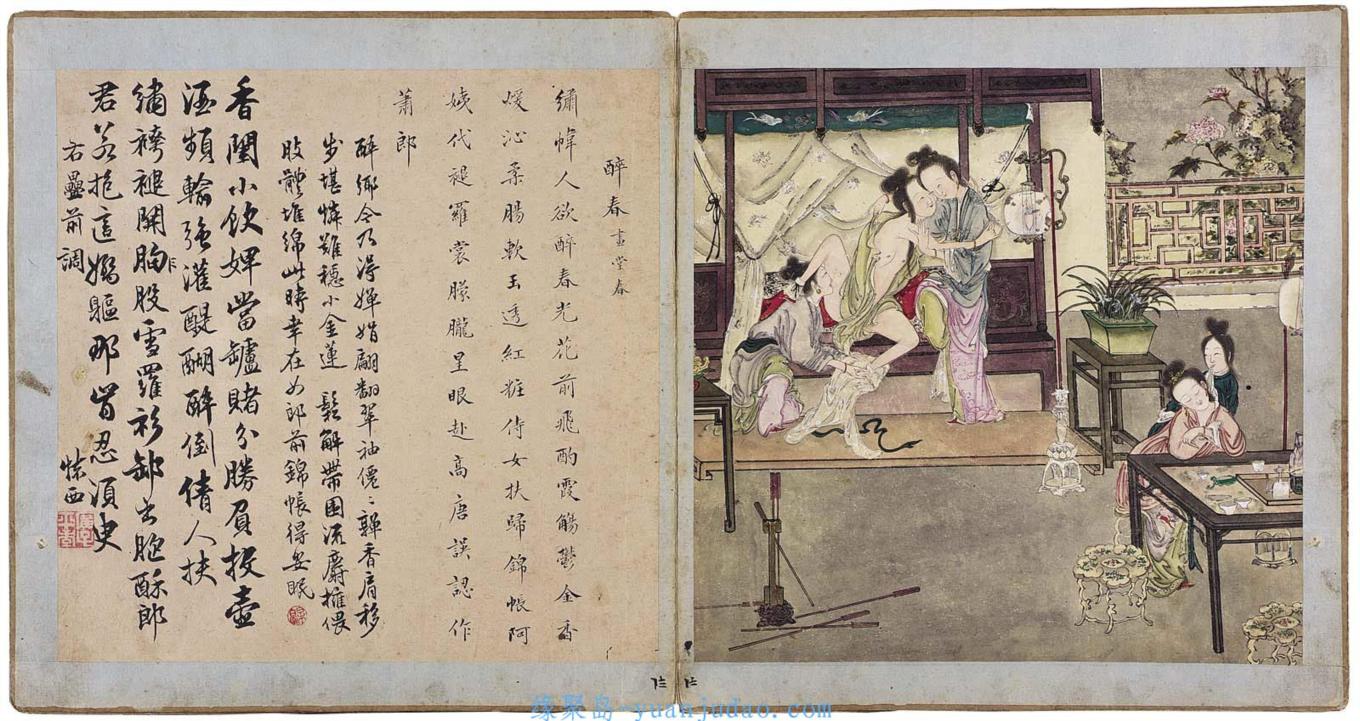 醉春畫堂春
繡幃人欲醉春光花前飛酌霞觴鬱金香
煖沁柔腸軟玉透紅粧侍女扶歸錦帳阿
姨代褪羅裳朦朧星眼赴高唐誤認作
蕭郎
醉鄉今乃得嬋娟翩翻翠袖僊〻嚲香肩移
步堪憐難穩小金蓮 鬆解帶圍流麝擁偎
肢體堆綿此時幸在女郎前錦帳得安眠
香閨小飲婢當罏賭分勝負投壺
酒頻輪强灌醍醐醉倒倩人扶
繡袴褪開胸股雪羅衫卸出胞酥郎
君若抱這嬌軀那肯忍須臾
右疊前調
西
缘聚岛-yuanjudao.com